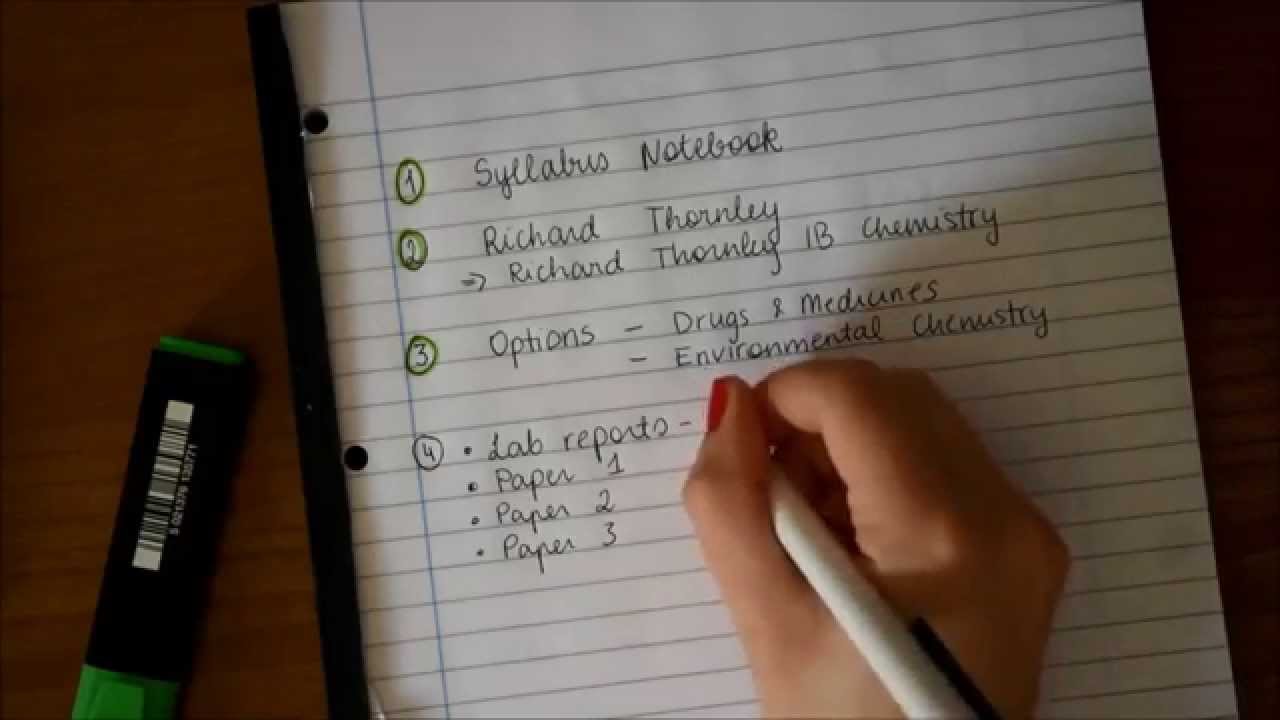 1 Syllabus Notebook
2 Richard Thornley
⇒ Richard Thornley IB Chemistry
3 Options - Drugs & Medicines
- Environmental Chemistry
4 • Lab reports -
• Paper 1
• Paper 2
• Paper 3
5 021379 120771